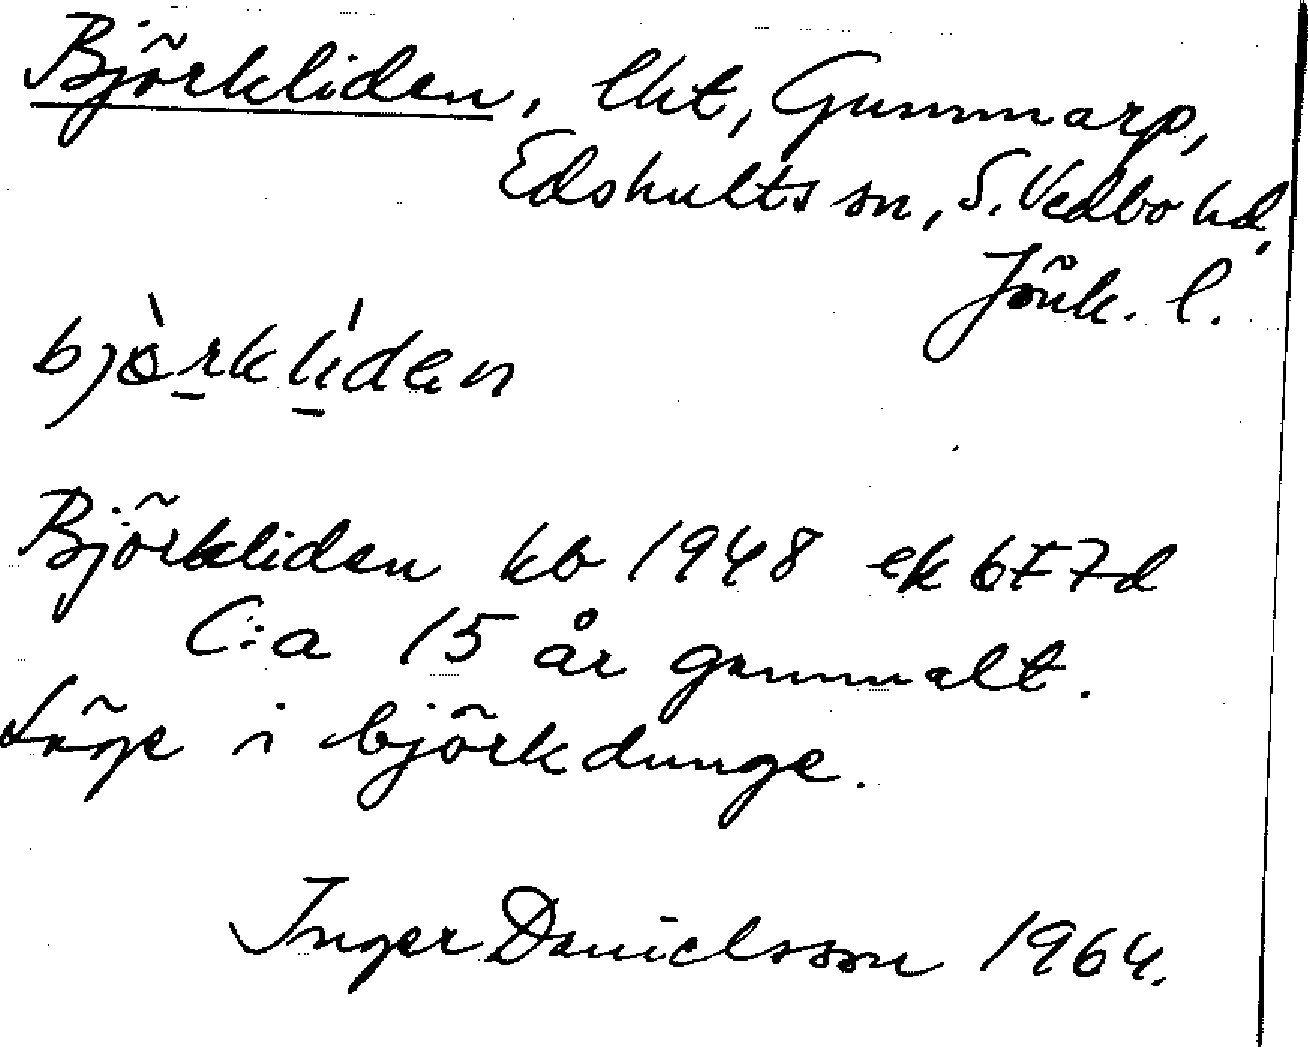 Björkliden, lht, Gummarp,
Edshults sn, S. Vedbo hd,
Jönk. l.
bjòrklíden
Björkliden kb 1948 ek 6F7d
C:a 15 år gammalt.
Läge i björkdunge.
Inger Danielsson 1964.